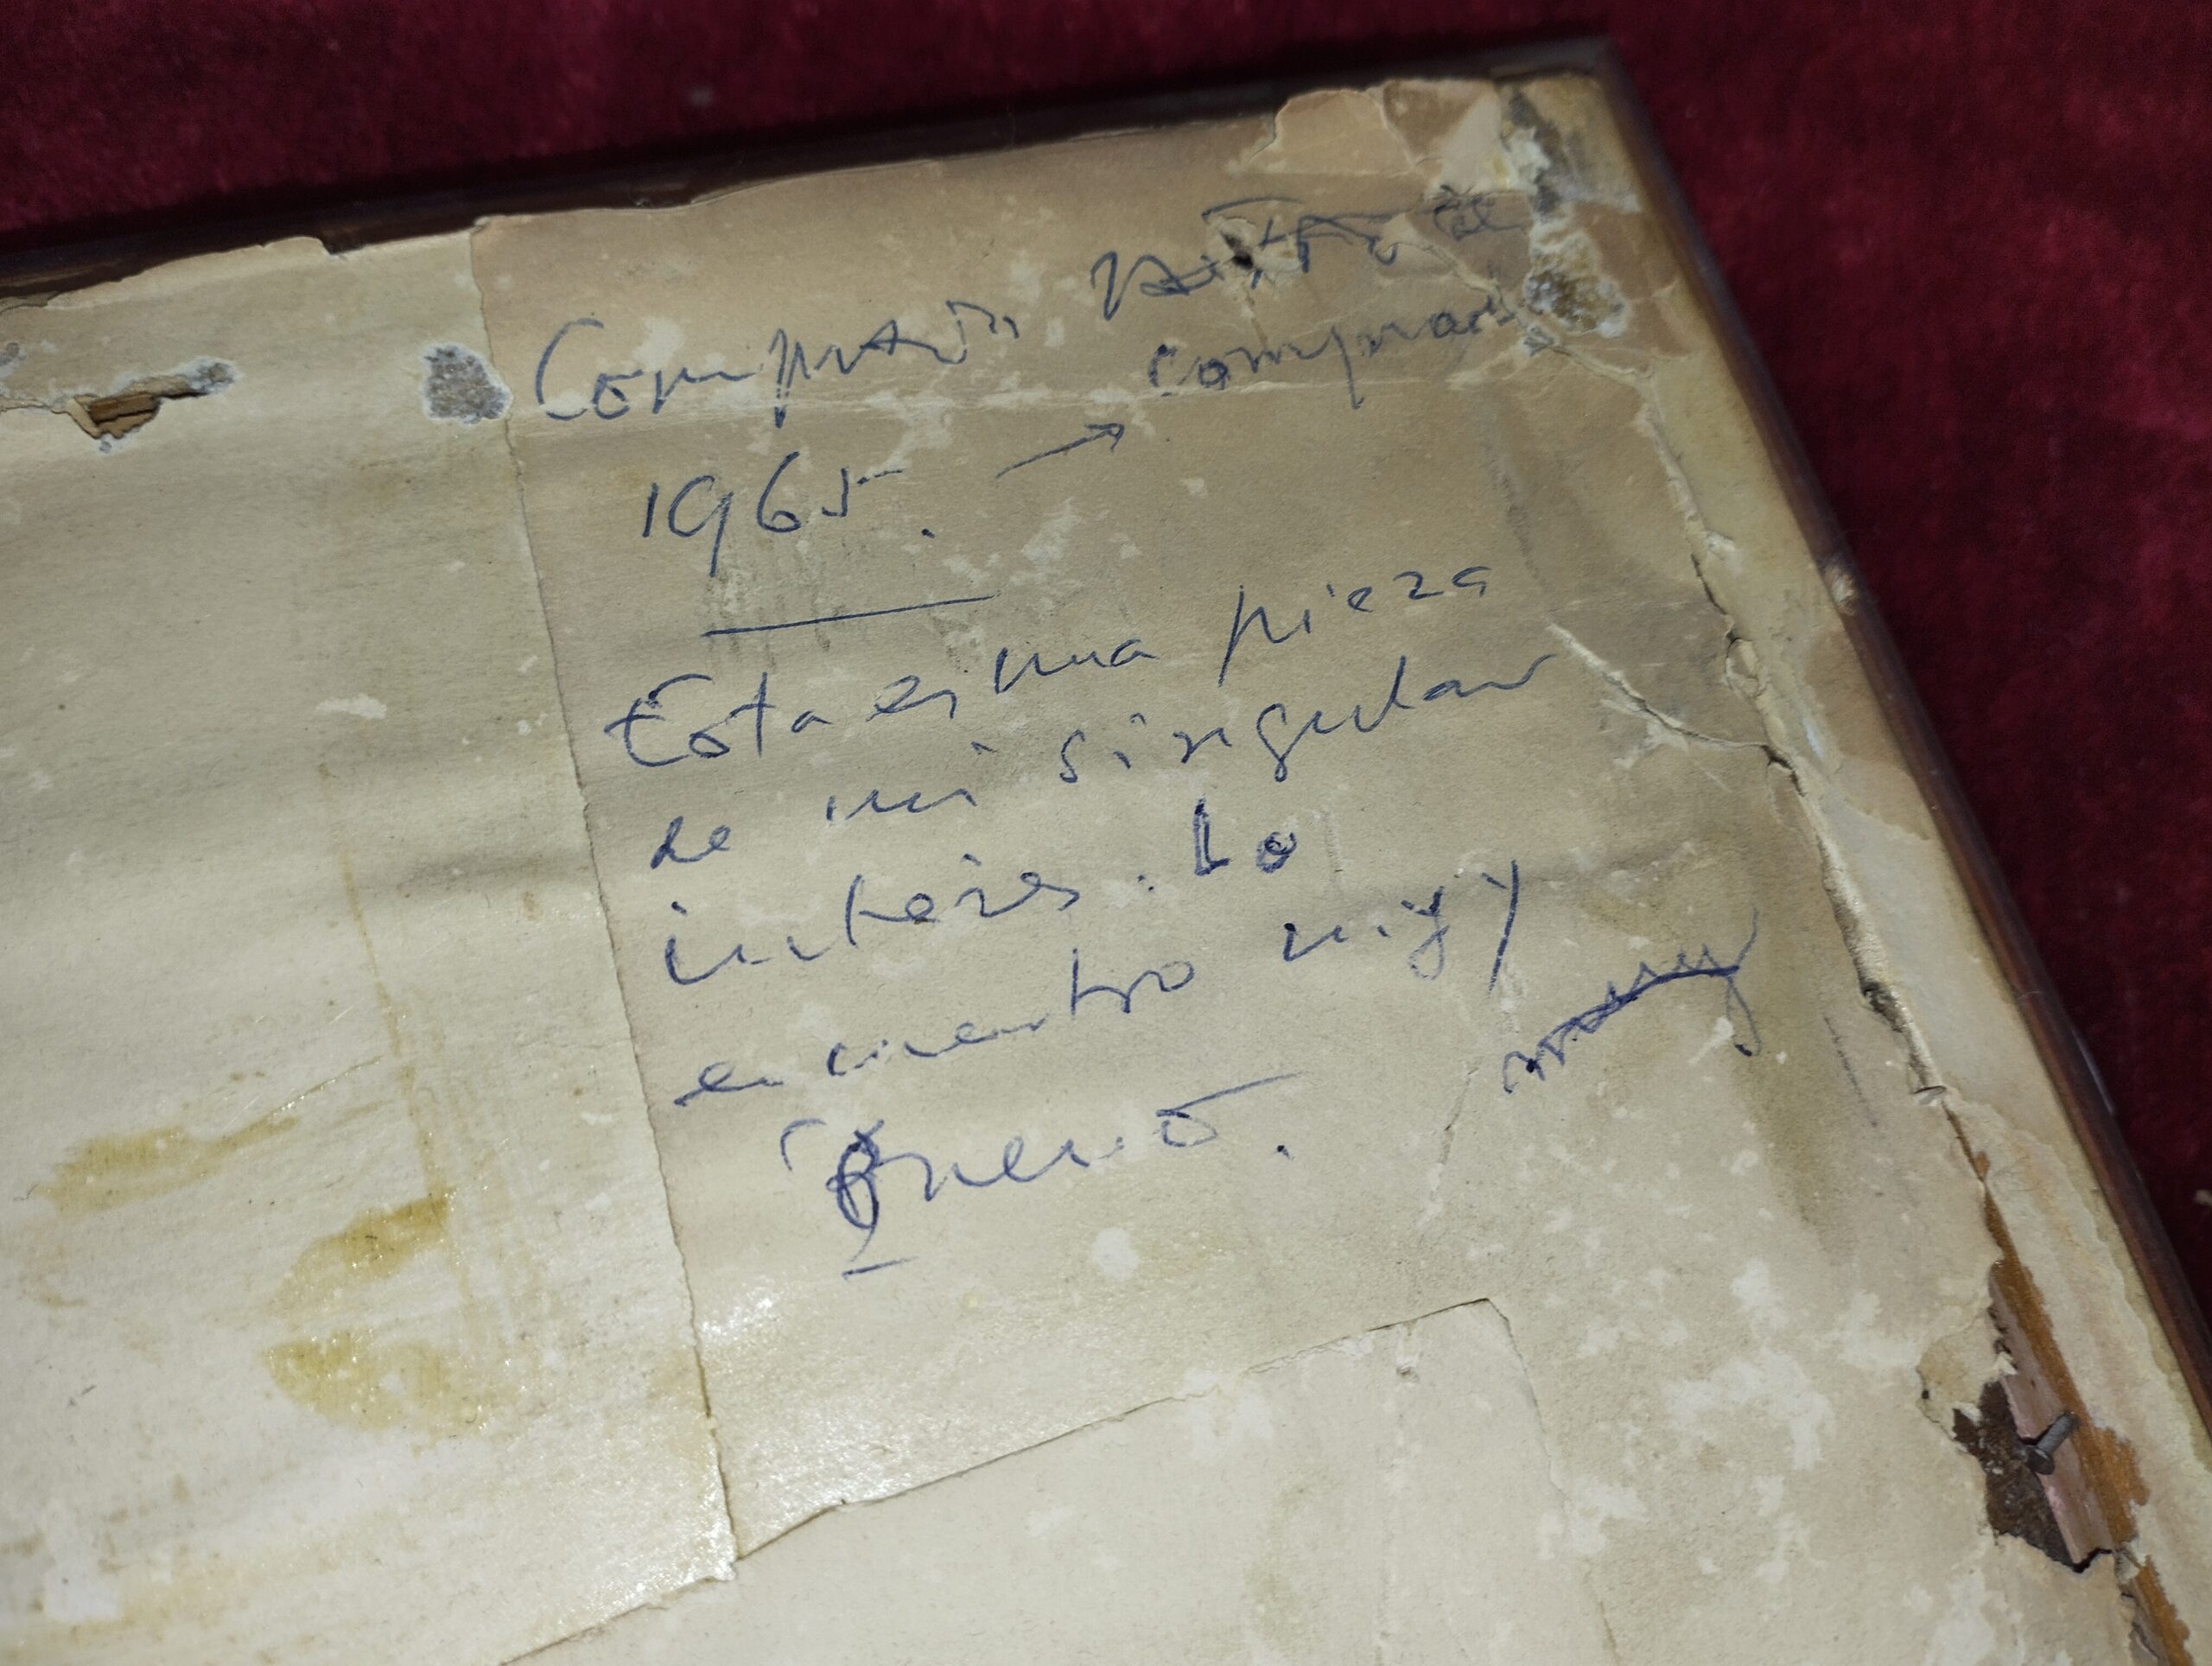 Comprado
comprado
1965. →
Esta es una pieza
de mi singular
interés. Lo
encuentro muy
muy
bueno.